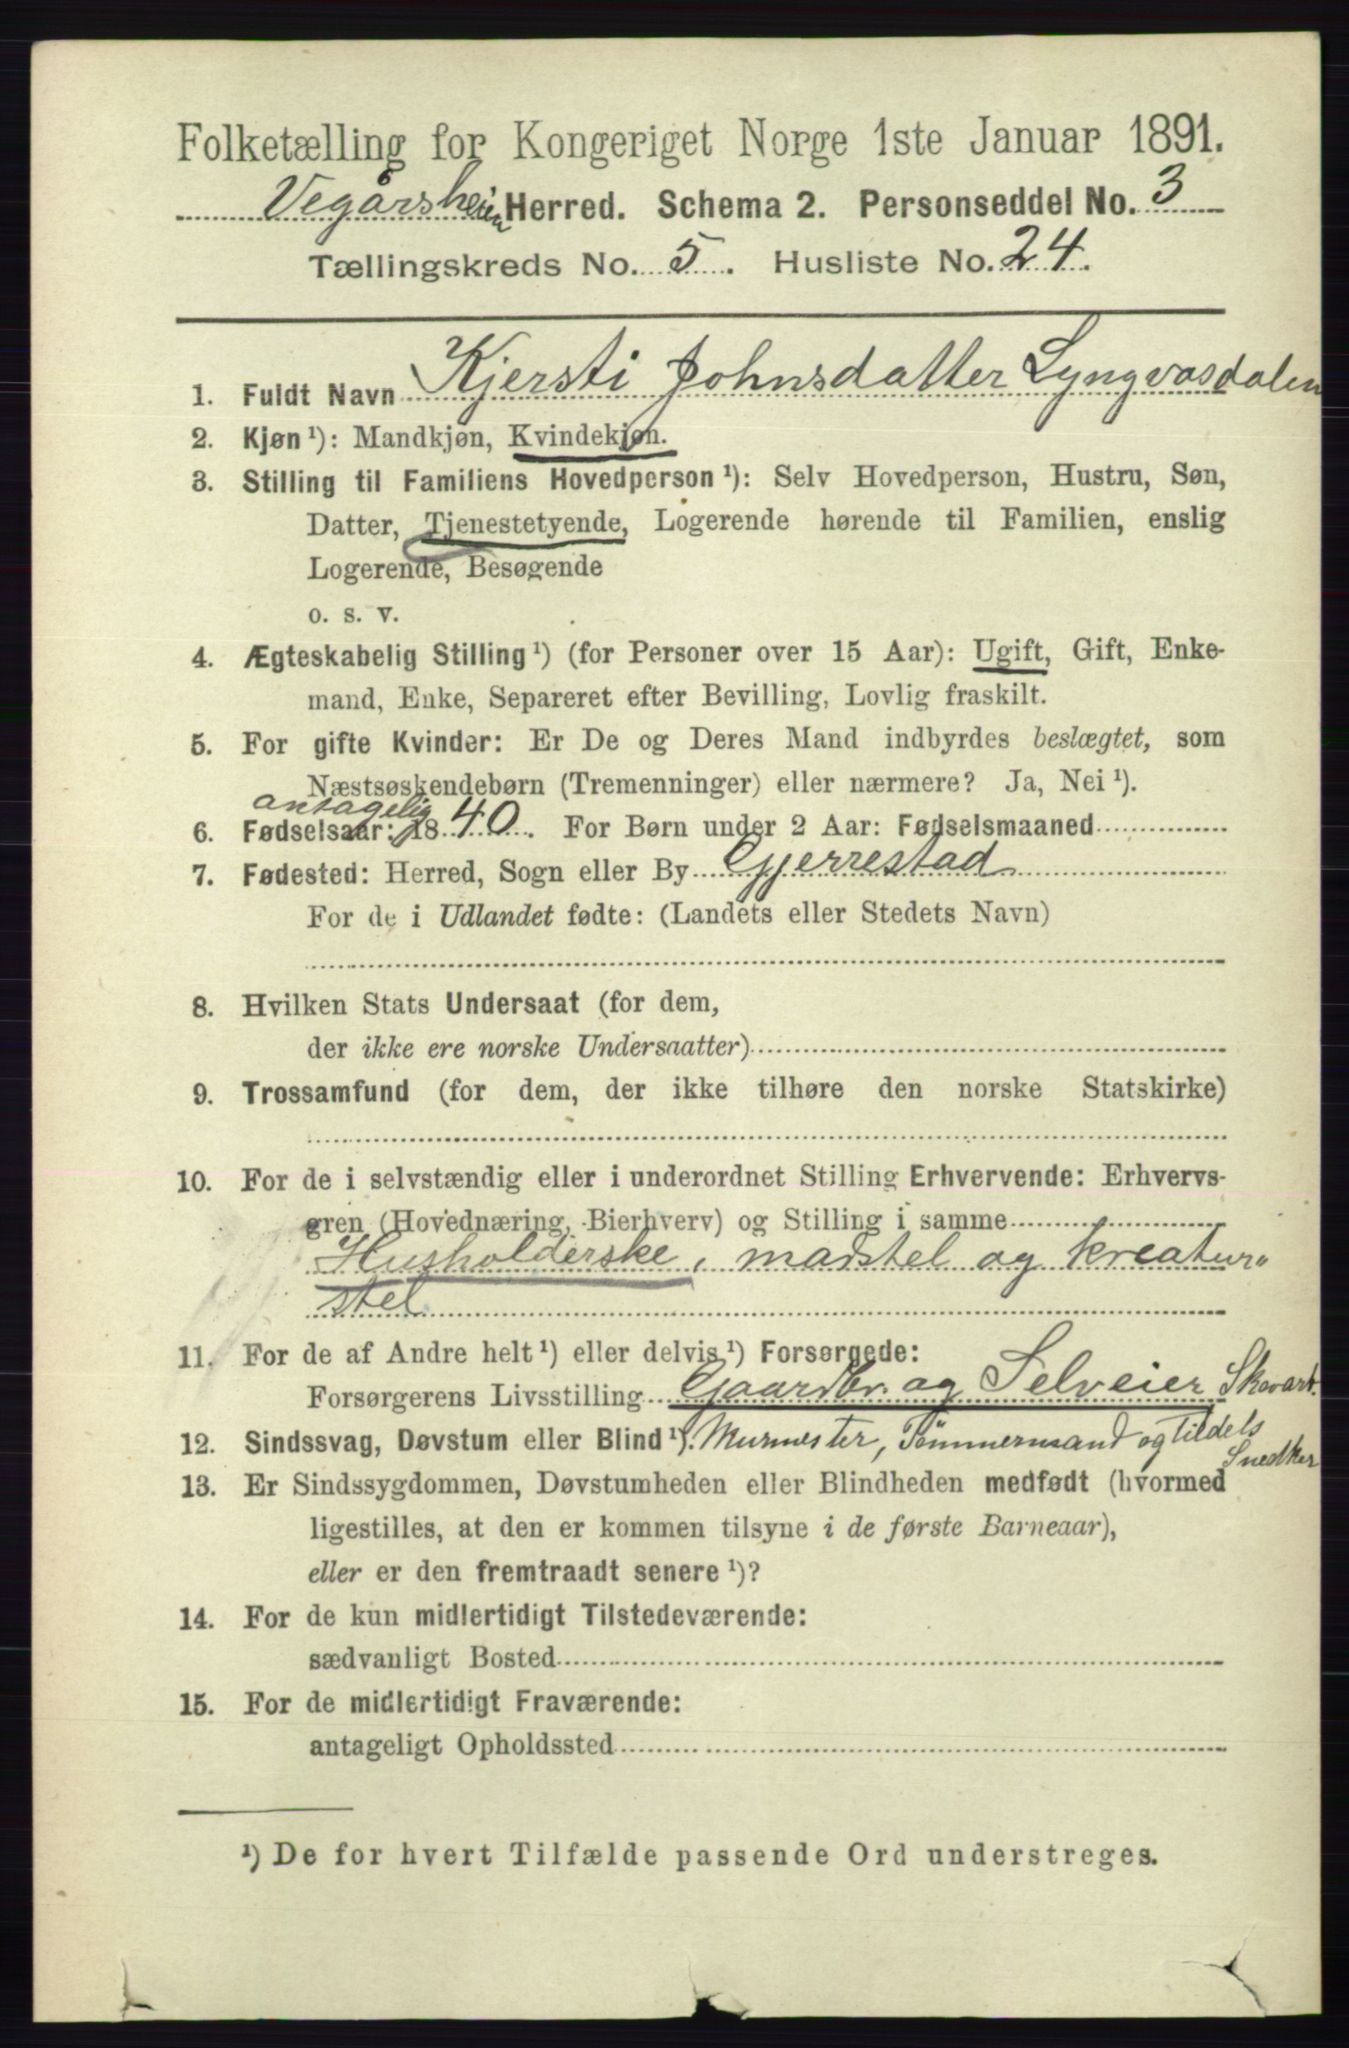 Folketælling for Kongeriget Norge 1ste Januar 1891.
Vegårsheien Herred. Schema 2. Personseddel No. 3
Tællingskreds No. 5. Husliste No. 24.
1. Fuldt Navn Kjersti Johnsdatter Lyngvasdalen
2. Kjøn ¹): Mandkjøn, Kvindekjøn.
3. Stilling til Familiens Hovedperson ¹): Selv Hovedperson, Hustru, Søn,
Datter, Tjenestetyende, Logerende hørende til Familien, enslig
Logerende, Besøgende
o. s. v.
4. Ægteskabelig Stilling ¹) (for Personer over 15 Aar): Ugift, Gift, Enke-
mand, Enke, Separeret efter Bevilling, Lovlig fraskilt.
5. For gifte Kvinder: Er De og Deres Mand indbyrdes beslægtet, som
Næstsøskendebørn (Tremenninger) eller nærmere? Ja, Nei ¹).
antagelig
6. Fødselsaar: 1840. For Børn under 2 Aar: Fødselsmaaned
7. Fødested: Herred, Sogn eller By Gjerrestad
For de i Udlandet fødte: (Landets eller Stedets Navn)
8. Hvilken Stats Undersaat (for dem,
der ikke ere norske Undersaatter)
9. Trossamfund (for dem, der ikke tilhøre den norske Statskirke)
10. For de i selvstændig eller i underordnet Stilling Erhvervende: Erhvervs-
gren (Hovednæring, Bierhverv) og Stilling i samme
Husholderske, madstel og kreatur„
stel
11. For de af Andre helt ¹) eller delvis ¹) Forsørgede:
Forsørgerens Livsstilling Gaardbr. og Selveier Skovarb.
12. Sindssvag, Døvstum eller Blind ¹). Murmester, Tømmermand og tildels
Snedker
13. Er Sindssygdommen, Døvstumheden eller Blindheden medfødt (hvormed
ligestilles, at den er kommen tilsyne i de første Barneaar),
eller er den fremtraadt senere ¹)?
14. For de kun midlertidigt Tilstedeværende:
sædvanligt Bosted
15. For de midlertidigt Fraværende:
antageligt Opholdssted
¹) De for hvert Tilfælde passende Ord understreges.